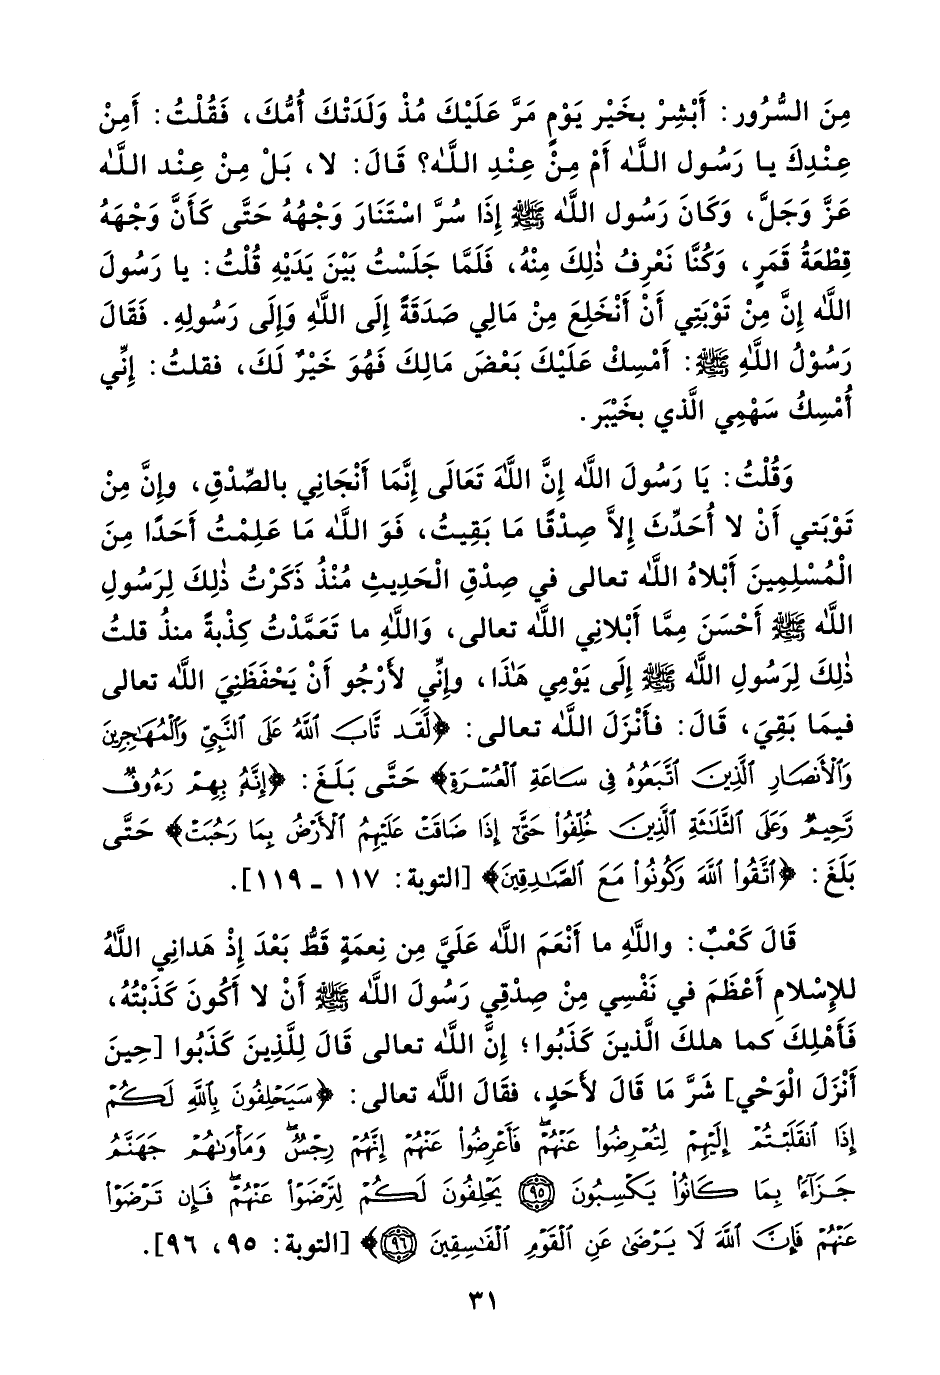 مِنَ السُّرُور: أَبْشِرْ بخَيْر يَوْمٍ مَرَّ عَلَيْكَ مُذْ وَلَدَتْكَ أُمُّكَ، فَقُلْتُ: أَمِنْ
عِنْدِكَ يا رَسُول اللَّه أَمْ مِنْ عِنْدِ اللَّه؟ قَالَ: لا، بَلْ مِنْ عِنْد اللَّه
عَزَّ وَجَلَّ، وَكَانَ رَسُول اللَّه ﷺ إِذَا سُرَّ اسْتَنَارَ وَجْهُهُ حَتَّى كَأَنَّ وَجْهَهُ
قِطْعَةُ قَمَرٍ، وَكُنَّا نَعْرِفُ ذٰلِكَ مِنْهُ، فَلَمَّا جَلَسْتُ بَيْنَ يَدَيْهِ قُلْتُ: يا رَسُولَ
اللَّه إِنَّ مِنْ تَوْبَتِي أَنْ أَنْخَلِعَ مِنْ مَالِي صَدَقَةً إِلَى اللَّهِ وَإِلَى رَسُولِهِ. فَقَالَ
رَسُوْلُ اللَّهِ ﷺ: أَمْسِكْ عَلَيْكَ بَعْضَ مَالِكَ فَهُوَ خَيْرٌ لَكَ، فقلتُ: إِنِّي
أُمْسِكُ سَهْمِي الَّذي بخَيْبَر.
وَقُلْتُ: يَا رَسُولَ اللَّه إِنَّ اللَّهَ تَعَالَى إِنَّمَا أَنْجَانِي بالصِّدْقِ، وإِنَّ مِنْ
تَوْبَتي أَنْ لا أُحَدِّثَ إِلاَّ صِدْقًا مَا بَقِيتُ، فَوَ اللَّه مَا عَلِمْتُ أَحَدًا مِنَ
الْمُسْلِمِينَ أَبْلاهُ اللَّه تعالى في صِدْقِ الْحَدِيثِ مُنْذُ ذَكَرْتُ ذٰلِكَ لِرَسُولِ
اللَّه ﷺ أَحْسَنَ مِمَّا أَبْلاني اللَّه تعالى، وَاللَّهِ ما تَعَمَّدْتُ كِذْبةً منذُ قلتُ
ذٰلِكَ لِرَسُولِ اللَّه ﷺ إِلَى يَوْمِي هَذَا، وإِنِّي لأَرْجُو أَنْ يَحْفَظَنِيَ اللَّه تعالى
فيمَا بَقِيَ، قَالَ: فأَنْزَلَ اللَّه تعالى: ﴿لَّقَد تَّابَ ٱللَّهُ عَلَى ٱلنَّبِيِّ وَٱلْمُهَاجِرِينَ
وَٱلْأَنصَارِ ٱلَّذِينَ ٱتَّبَعُوهُ فِي سَاعَةِ ٱلْعُسْرَةِ﴾ حَتَّى بَلَغَ: ﴿إِنَّهُ بِهِمْ رَءُوفٌ
رَّحِيمٌ وَعَلَى ٱلثَّلَاثَةِ ٱلَّذِينَ خُلِّفُوا۟ حَتَّىٰ إِذَا ضَاقَتْ عَلَيْهِمُ ٱلْأَرْضُ بِمَا رَحُبَتْ﴾ حَتَّى
بَلَغَ: ﴿ٱتَّقُوا۟ ٱللَّهَ وَكُونُوا۟ مَعَ ٱلصَّـٰدِقِينَ﴾ [التوبة: ١١٧ ـ ١١٩].
قَالَ كَعْبٌ: واللَّهِ ما أَنْعَمَ اللَّه عَلَيَّ مِن نِعمَةٍ قَطُّ بَعْدَ إِذْ هَداني اللَّهُ
للإِسْلامِ أَعْظَمَ في نَفْسِي مِنْ صِدْقِي رَسُولَ اللَّه ﷺ أَنْ لا أَكُونَ كَذَبْتُهُ،
فَأَهْلِكَ كما هلكَ الَّذينَ كَذَبُوا؛ إِنَّ اللَّه تعالى قَالَ لِلَّذِينَ كَذَبُوا [حِينَ
أَنْزَلَ الْوَحْي] شَرَّ مَا قَالَ لأَحَدٍ، فقَالَ اللَّه تعالى: ﴿سَيَحْلِفُونَ بِٱللَّهِ لَكُمْ
إِذَا ٱنقَلَبْتُمْ إِلَيْهِمْ لِتُعْرِضُوا۟ عَنْهُمْ ۖ فَأَعْرِضُوا۟ عَنْهُمْ إِنَّهُمْ رِجْسٌ ۖ وَمَأْوَىٰهُمْ جَهَنَّمُ
جَزَآءًۢ بِمَا كَانُوا۟ يَكْسِبُونَ ٩٥ يَحْلِفُونَ لَكُمْ لِتَرْضَوْا۟ عَنْهُمْ ۖ فَإِن تَرْضَوْا۟
عَنْهُمْ فَإِنَّ ٱللَّهَ لَا يَرْضَىٰ عَنِ ٱلْقَوْمِ ٱلْفَـٰسِقِينَ ٩٦﴾ [التوبة: ٩٥، ٩٦].
٣١